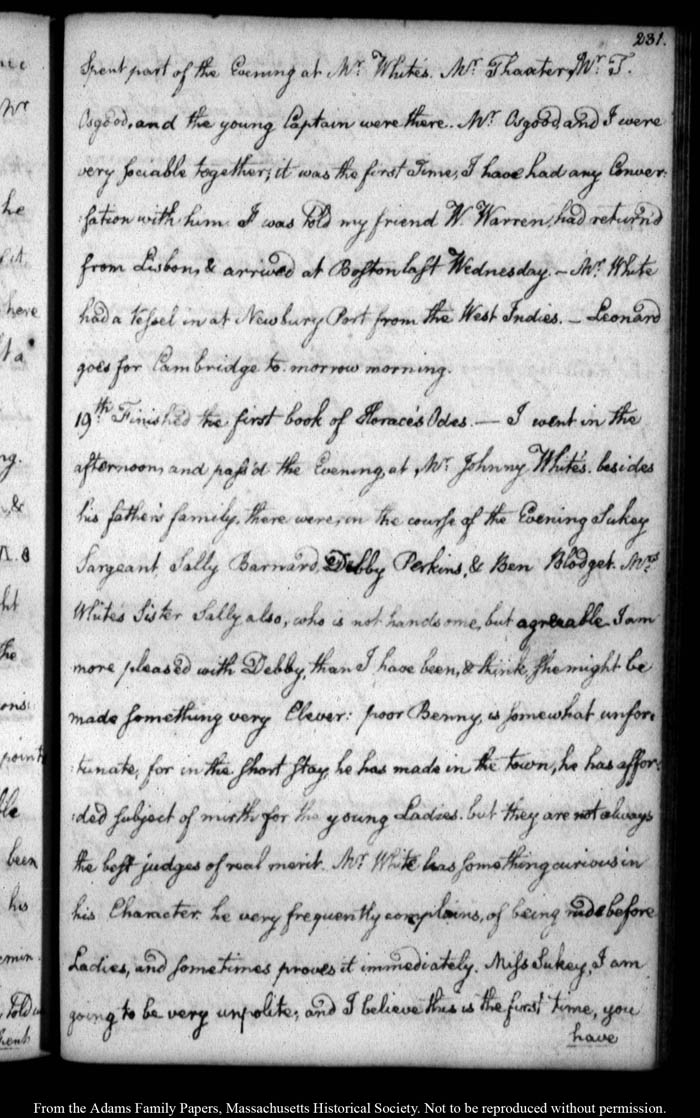 231.
Spent part of the Evening at Mr. White's. Mr. Thaxter, Mr. T.
Osgood, and the young Captain were there. Mr. Osgood, and I were
very sociable together; it was the first Time, I have had any Conver-
:sation with him. I was told my friend W. Warren, had return'd
from Lisbon, & arrived at Boston last Wednesday. — Mr. White
had a Vessel in at Newbury Port from the West Indies. — Leonard
goes for Cambridge to-morrow morning.
19th. Finished the first book of Horace's Odes. — I went in the
afternoon, and pass'd the Evening, at Mr. Johnny White's. besides
his father's family, there were, in the course of the Evening Sukey
Sargeant, Sally Barnard, Debby Perkins, & Ben Blodget. Mrs.
White's Sister Sally also, who is not handsome, but agreeable. I am
more pleased with Debby, than I have been, & think, she might be
made something very Clever: poor Benny, is somewhat unfor:
:tunate, for in the short stay, he has made in the town, he has affor:
:ded subject of mirth for the young Ladies. but they are not always
the best judges of real merit. Mr. White has something curious in
his Character. he very frequently complains, of being rude before
Ladies, and sometimes proves it immediately. Miss Sukey, I am
going to be very unpolite, and I believe this is the first time, you
have
From the Adams Family Papers, Massachusetts Historical Society. Not to be reproduced without permission.